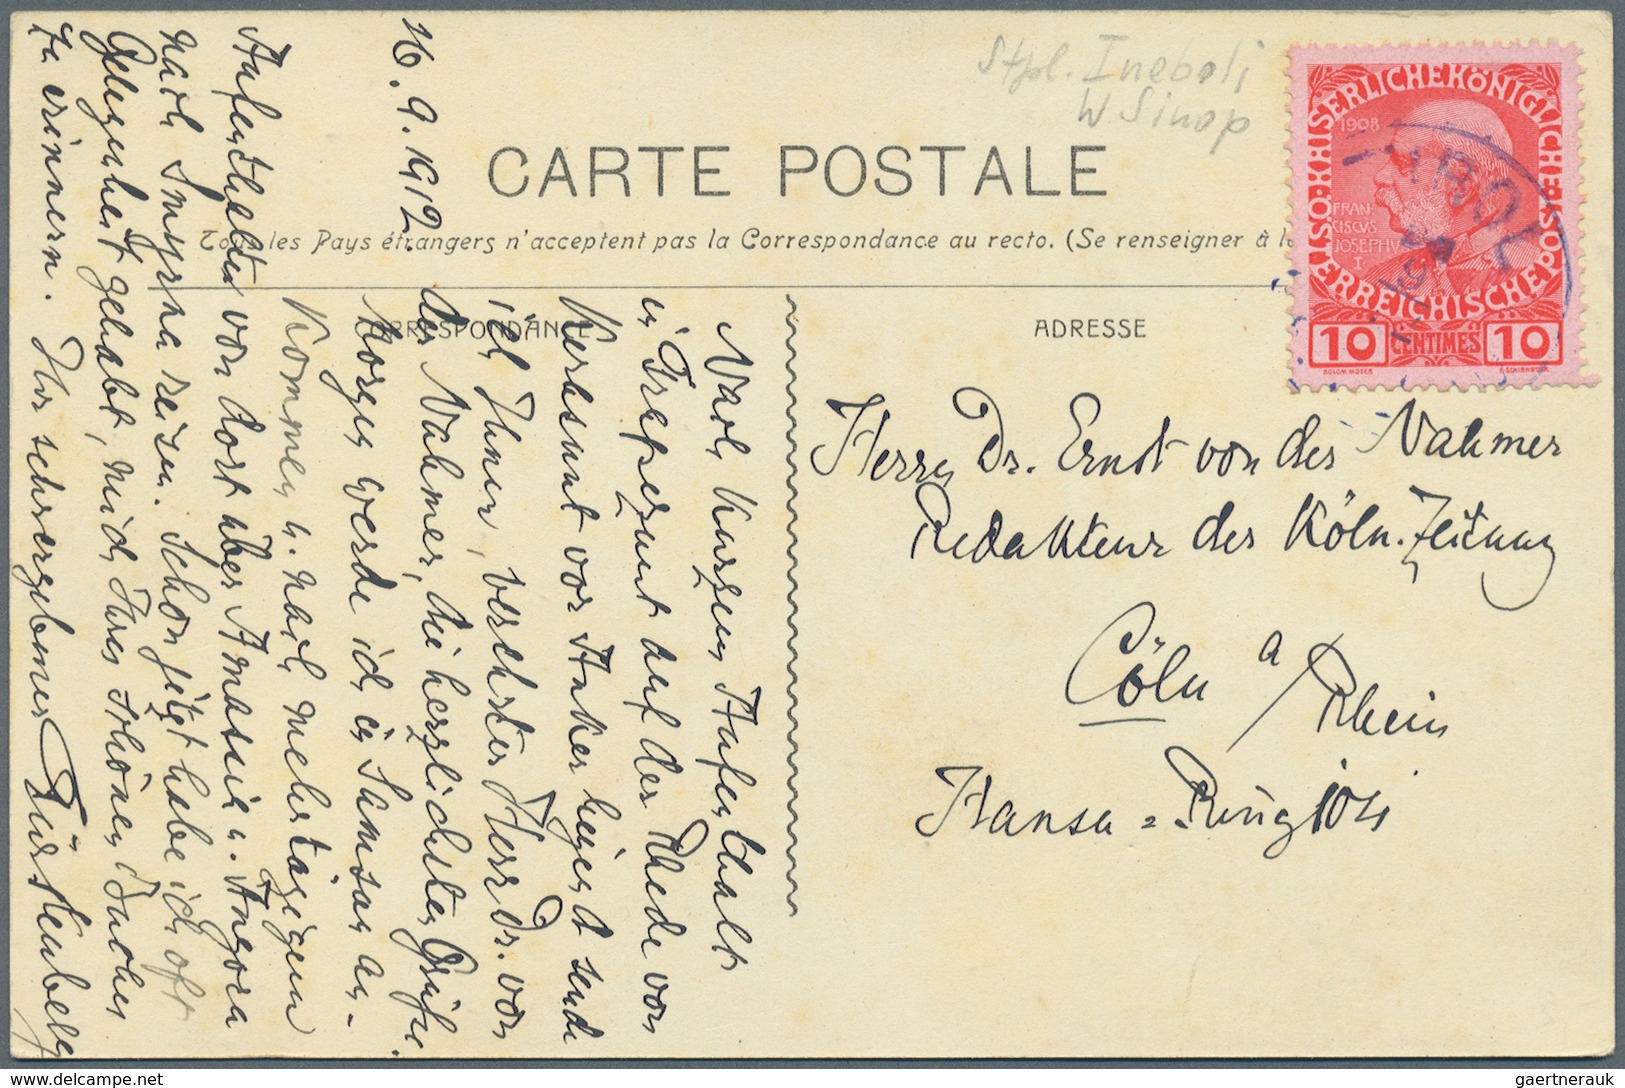 Stpl. Ineboli
W Sinop
CARTE POSTALE
Tous les Pays étrangers n'acceptent pas la Correspondance au recto. (Se renseigner à la
CORRESPONDANCE
ADRESSE
KAISERLICHE KÖNIGLICHE
ÖSTERREICHISCHE POST
1908
FRAN-
CISCUS
JOSEPHUS
I.
10 CENTIMES 10
KOLOM. MOSER
F. SCHIRNBÖCK
Herrn Dr. Ernst von der Nahmer
Redakteur der Köln. Zeitung
Cöln a/Rhein
Hansa-Ring
16.9.1912.
Nach kurzem Aufenthalt
in Trapezunt auf der Rhede von
Kerasunt vor Anker liegend sende
ich Ihnen, verehrter Herr Dr. von
der Nahmer, die herzlichsten Grüße.
Morgen werde ich in Samsun an-
kommen u. nach mehrtägigem
Aufenthalte von dort über Amassia u. Angora
nach Smyrna reisen. Schon jetzt habe ich oft
Gelegenheit gehabt, mich Ihres schönen Buches
zu erinnern. Ihr sehr ergebener Fürstenberg
gaertnerauk